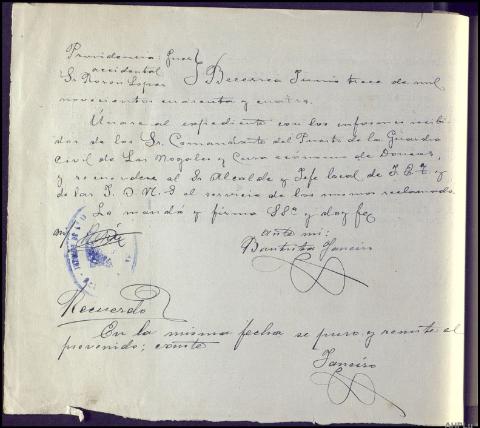 Providencia: Juez
accidental
Sr. Rosón López
Becerreá Junio trece de mil
novecientos cuarenta y cuatro.
Únase al expediente con los informes recibi-
dos de los Sr. Comandante del Puesto de la Guardia
Civil de Los Nogales y Cura ecónomo de Doncos,
y recuérdese al Sr. Alcalde y Jefe local de F.E.T. y
de las J.O.N.S el servicio de los mismos reclamado.
Lo mandó y firma SSª y doy fe
Ante mi:
Recuerdo
En la misma fecha se puso y remite el
prevenido; conste